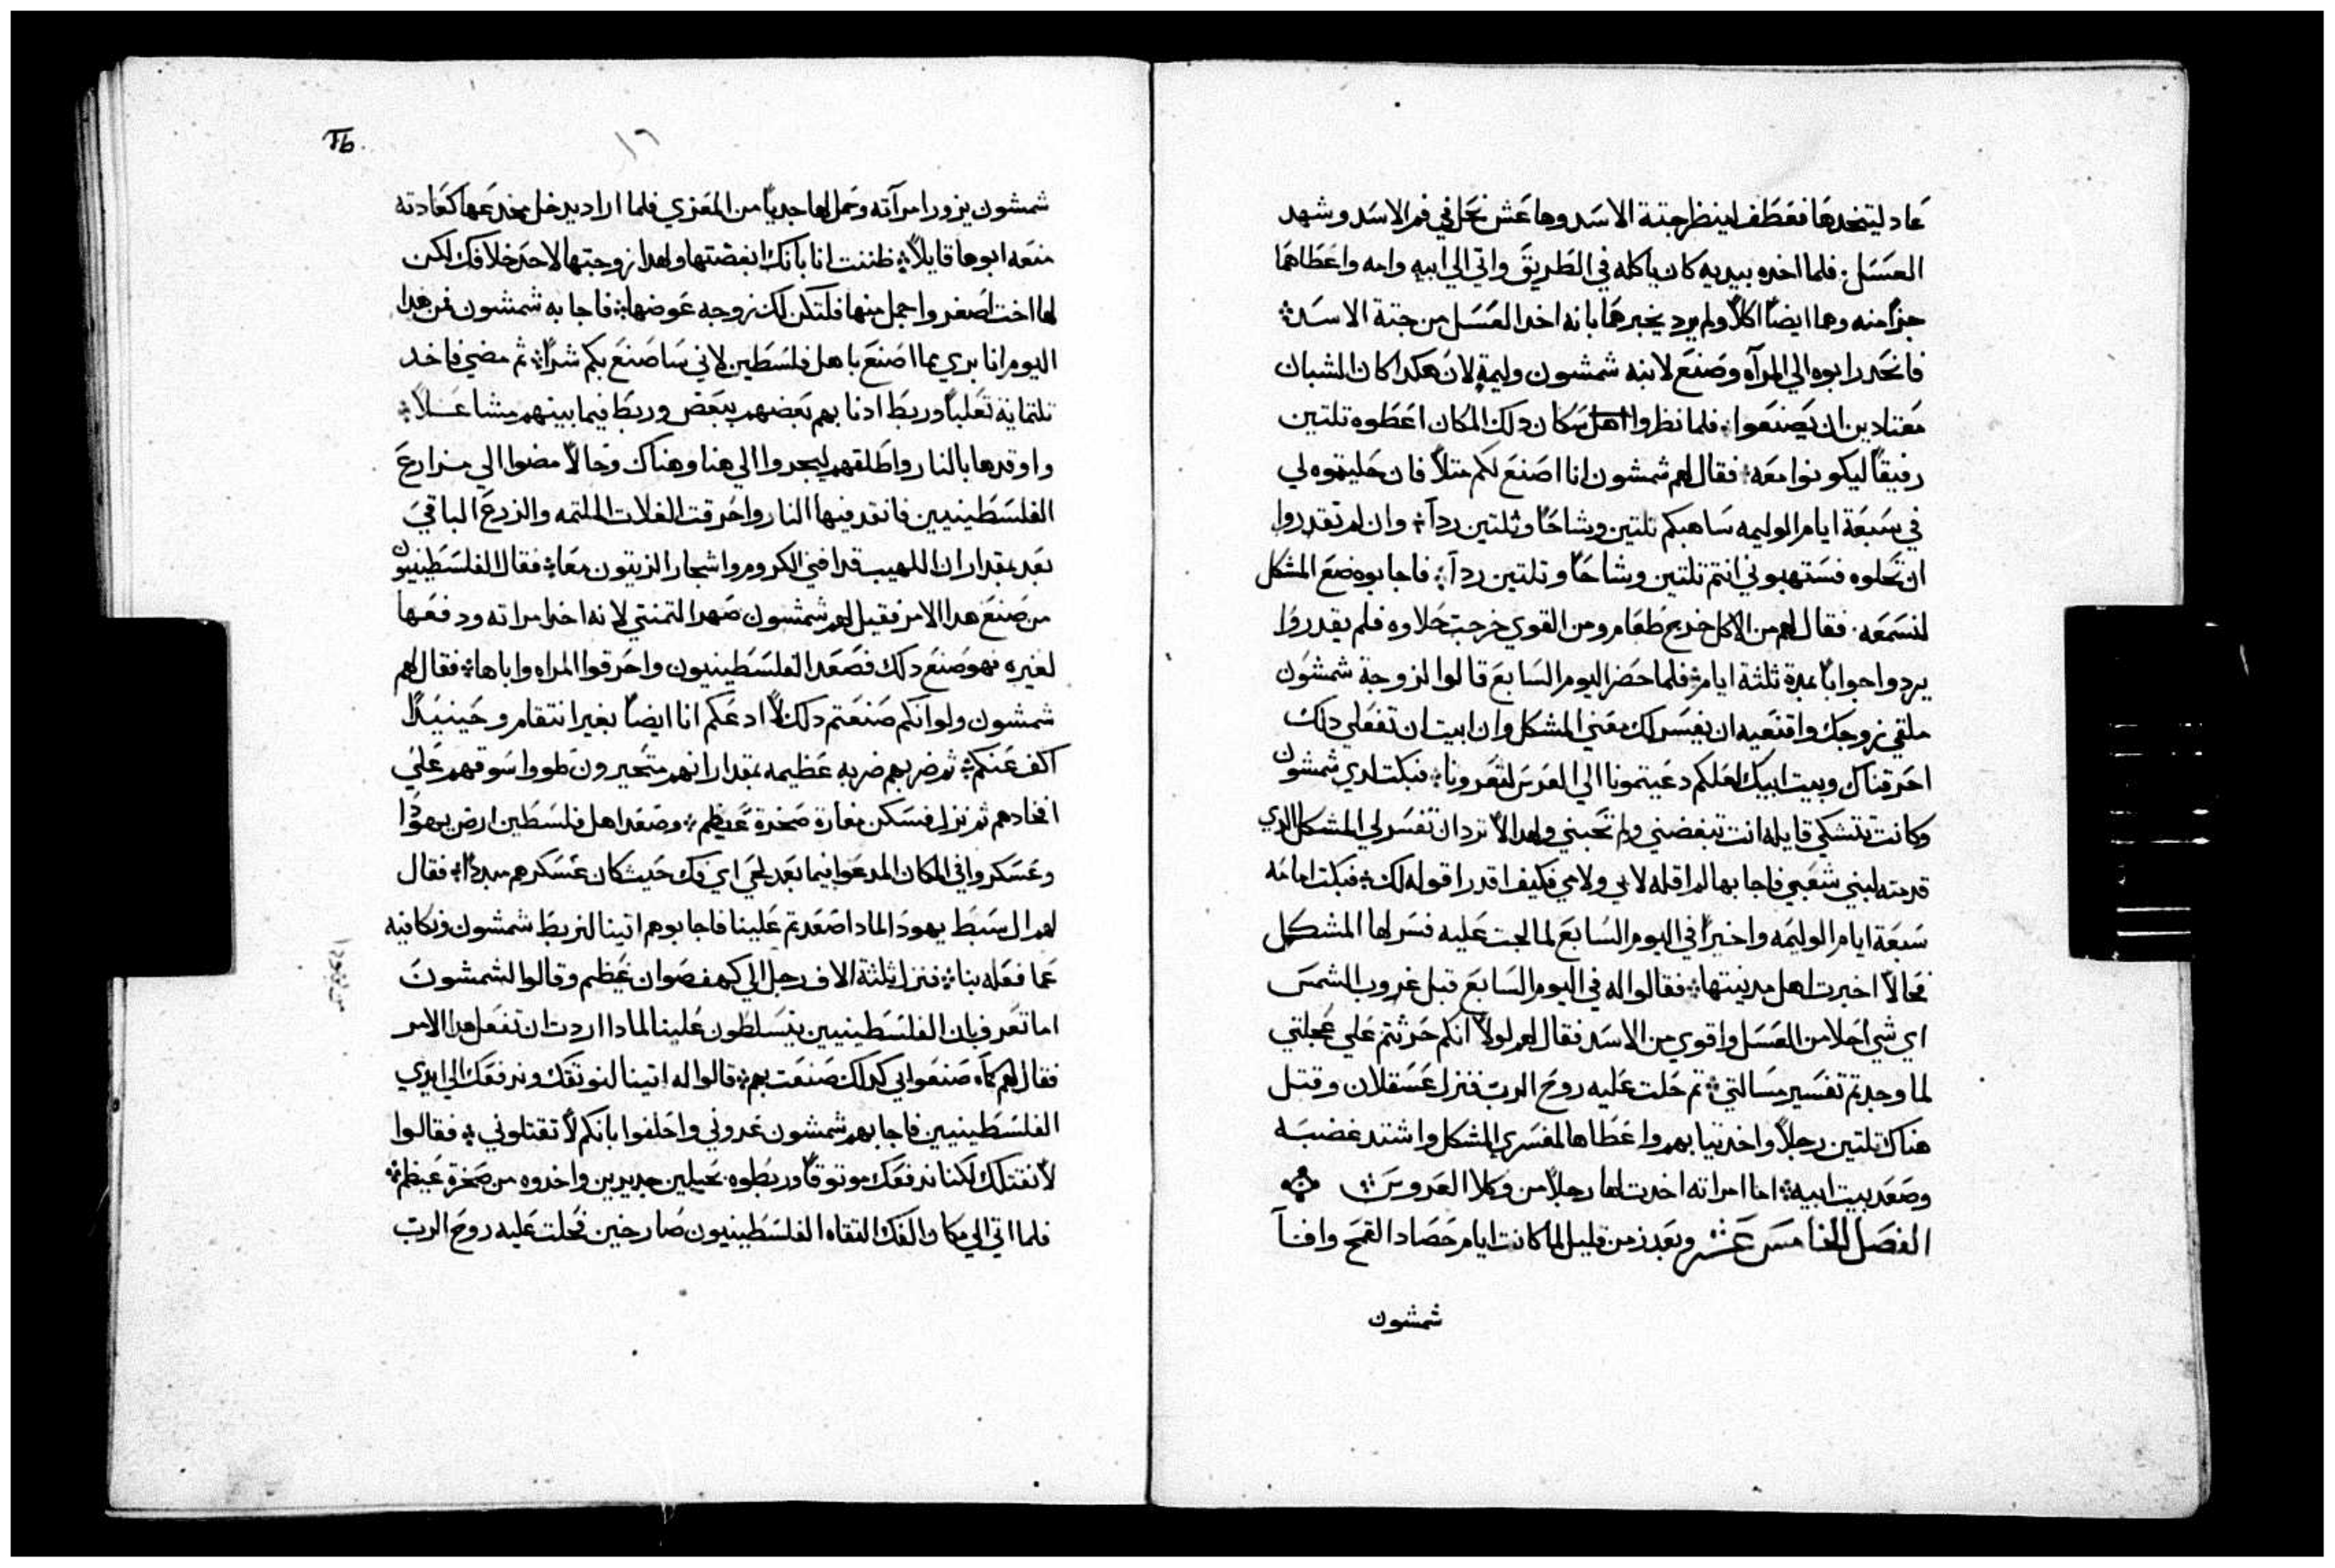 عاد ليتخدها فعطف لينظر جتة الاسد وها عش نحل في فم الاسد وشهد
العسل. فلما اخده بيديه كان ياكله في الطريق واتي الي ابيه وامه واعطاهما
جزا منه وهما ايضا اكلا ولم يرد يخبرهما بانه اخد العسل من جتة الاسد
فانحدر ابوه الي المرآه وصنع لابنه شمشون وليمة لان هكدا كان الشبان
معتادين ان يصنعوا. فلما نظروا اهل سكان دلك المكان اعطوه تلتين
رفيقا ليكونوا معه فقال لهم شمشون انا اصنع لكم متلا فان حليتموه لي
في سبعة ايام الوليمه ساهبكم تلتين وشاحا وثلتين ردآ وان لم تقدروا
ان تحلوه فستهبوني انتم تلتين وشاحا وتلتين ردآ فاجابوه ضع المشكل
لنسمعه. فقال لهم من الاكل خرج طعام ومن القوي خرجت حلاوه فلم يقدروا
يردوا جوابا بمدة ثلثة ايام فلما حضر اليوم السابع قالوا لزوجة شمشون
ملقي زوجك واقنعيه ان يفسر لك معني المشكل وان ابيت ان تفعلي دلك
احرقناك وبيت ابيك لعلكم دعيتمونا الي العرس لتعرونا فبكت لدي شمشون
وكانت تتشكي قايله انت تبغضني ولم تحبني ولهدا لا ترد ان تفسر لي المشكل الدي
قدمته لبني شعبي فاجابها لم اقله لابي ولامي فكيف اقدر اقوله لك فبكت امامه
سبعة ايام الوليمه واخيرا في اليوم السابع لما لجت عليه فسر لها المشكل
فحالا اخبرت اهل مدينتها فقالوا له في اليوم السابع قبل غروب الشمس
اي شي احلا من العسل واقوي من الاسد فقال لهم لولا انكم حرثتم علي عجلتي
لما وجدتم تفسير مسالتي تم حلت عليه روح الرب فنزل عسقلان وقتل
هناك تلتين رجلا واخد تيابهم واعطاها لمفسري المشكل واشتد غضبه
وصعد بيت ابيه اما امراته اخدت لها رجلا من وكلا العروس
الفصل الخامس عشر وبعد زمن قليل لما كانت ايام حصاد القمح وافآ
شمشون
١٦
شمشون يزور امرآته وحمل لها جديا من المعزي فلما اراد يدخل مخدعها كعادته
منعه ابوها قايلا ظننت انا بانك ابغضتها ولهدا زوجتها لاحد خلافك لكن
لها اخت اصغر واجمل منها فلتكن لك زوجه عوضها فاجابه شمشون من هدا
اليوم انا بري مما اصنع باهل فلسطين لاني ساصنع بكم شرا ثم مضي فاخد
تلتماية تعلبا وربط ادنابهم بعضهم ببعض وربط فيما بينهم مشاعلا
واوقدها بالنار واطلقهم ليجروا الي هنا وهناك وحالا مضوا الي مزارع
الفلسطينيين فانقد فيها النار واحرقت الغلات الملتمه والزرع الباقي
بعد بمقدار ان اللهيب قد افني الكروم واشجار الزيتون معا فقال الفلسطينيون
من صنع هدا الامر فقيل لهم شمشون صهر التمنتي لانه اخد امراته ودفعها
لغيره فهو صنع دلك فصعد الفلسطينيون واحرقوا المراه واباها فقال لهم
شمشون ولو انكم صنعتم دلك لا ادعكم انا ايضا بغير انتقام وحينيدا
اكف عنكم ثم ضربهم ضربه عظيمه بمقدار انهم متحيرون طووا اسوقهم علي
افخادهم ثم نزل فسكن مغارة صخرة عيظم وصعد اهل فلسطين ارض يهودا
وعسكروا في المكان المدعوا فيما بعد لحي اي فك حيث كان عسكرهم مبددا فقال
لهم ال سبط يهودا لمادا صعدتم علينا فاجابوهم اتينا لنربط شمشون ونكافيه
عما فعله بنا فنزل ثلثة الاف رجل الي كهف صوان عيظم وقالوا لشمشون
اما تعرف بان الفلسطينيين يتسلطون علينا لمادا اردت ان تفعل هدا الامر
فقال لهم كما صنعوا بي كدلك صنعت بهم قالوا له اتينا لنوتقك وندفعك الي ايدي
الفلسطينيين فاجابهم شمشون عدوني واحلفوا بانكم لا تقتلوني فقالوا
لا نقتلك لكننا ندفعك موتوقا وربطوه بحبلين جديدين واخدوه من صخرة عيظم
فلما اتي الي مكان الفك التقاه الفلسطينيون صارخين فحلت عليه روح الرب